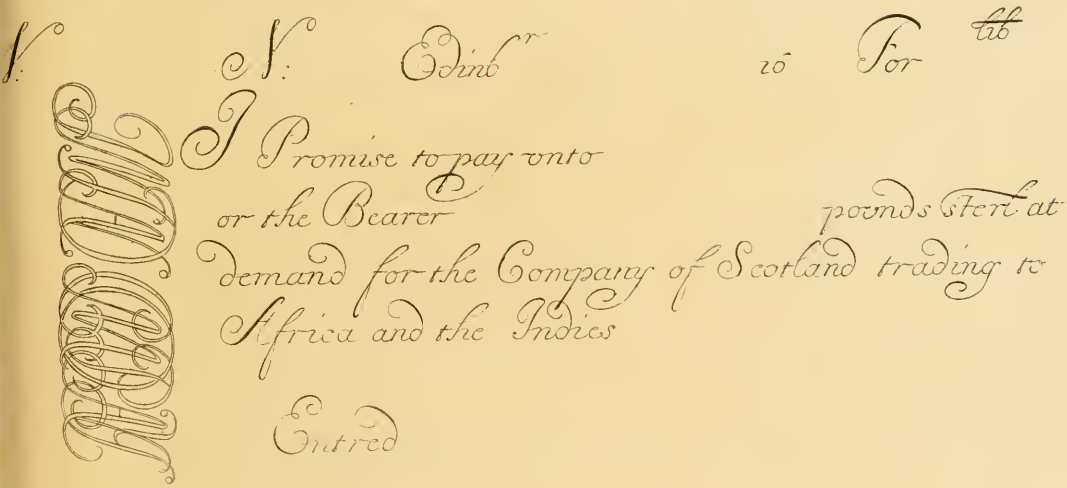 N: N: Edinbʳ 16 For lib
I Promise to pay vnto
or the Bearer pounds sterl at
demand for the Company of Scotland trading to
Africa and the Indies
Entred